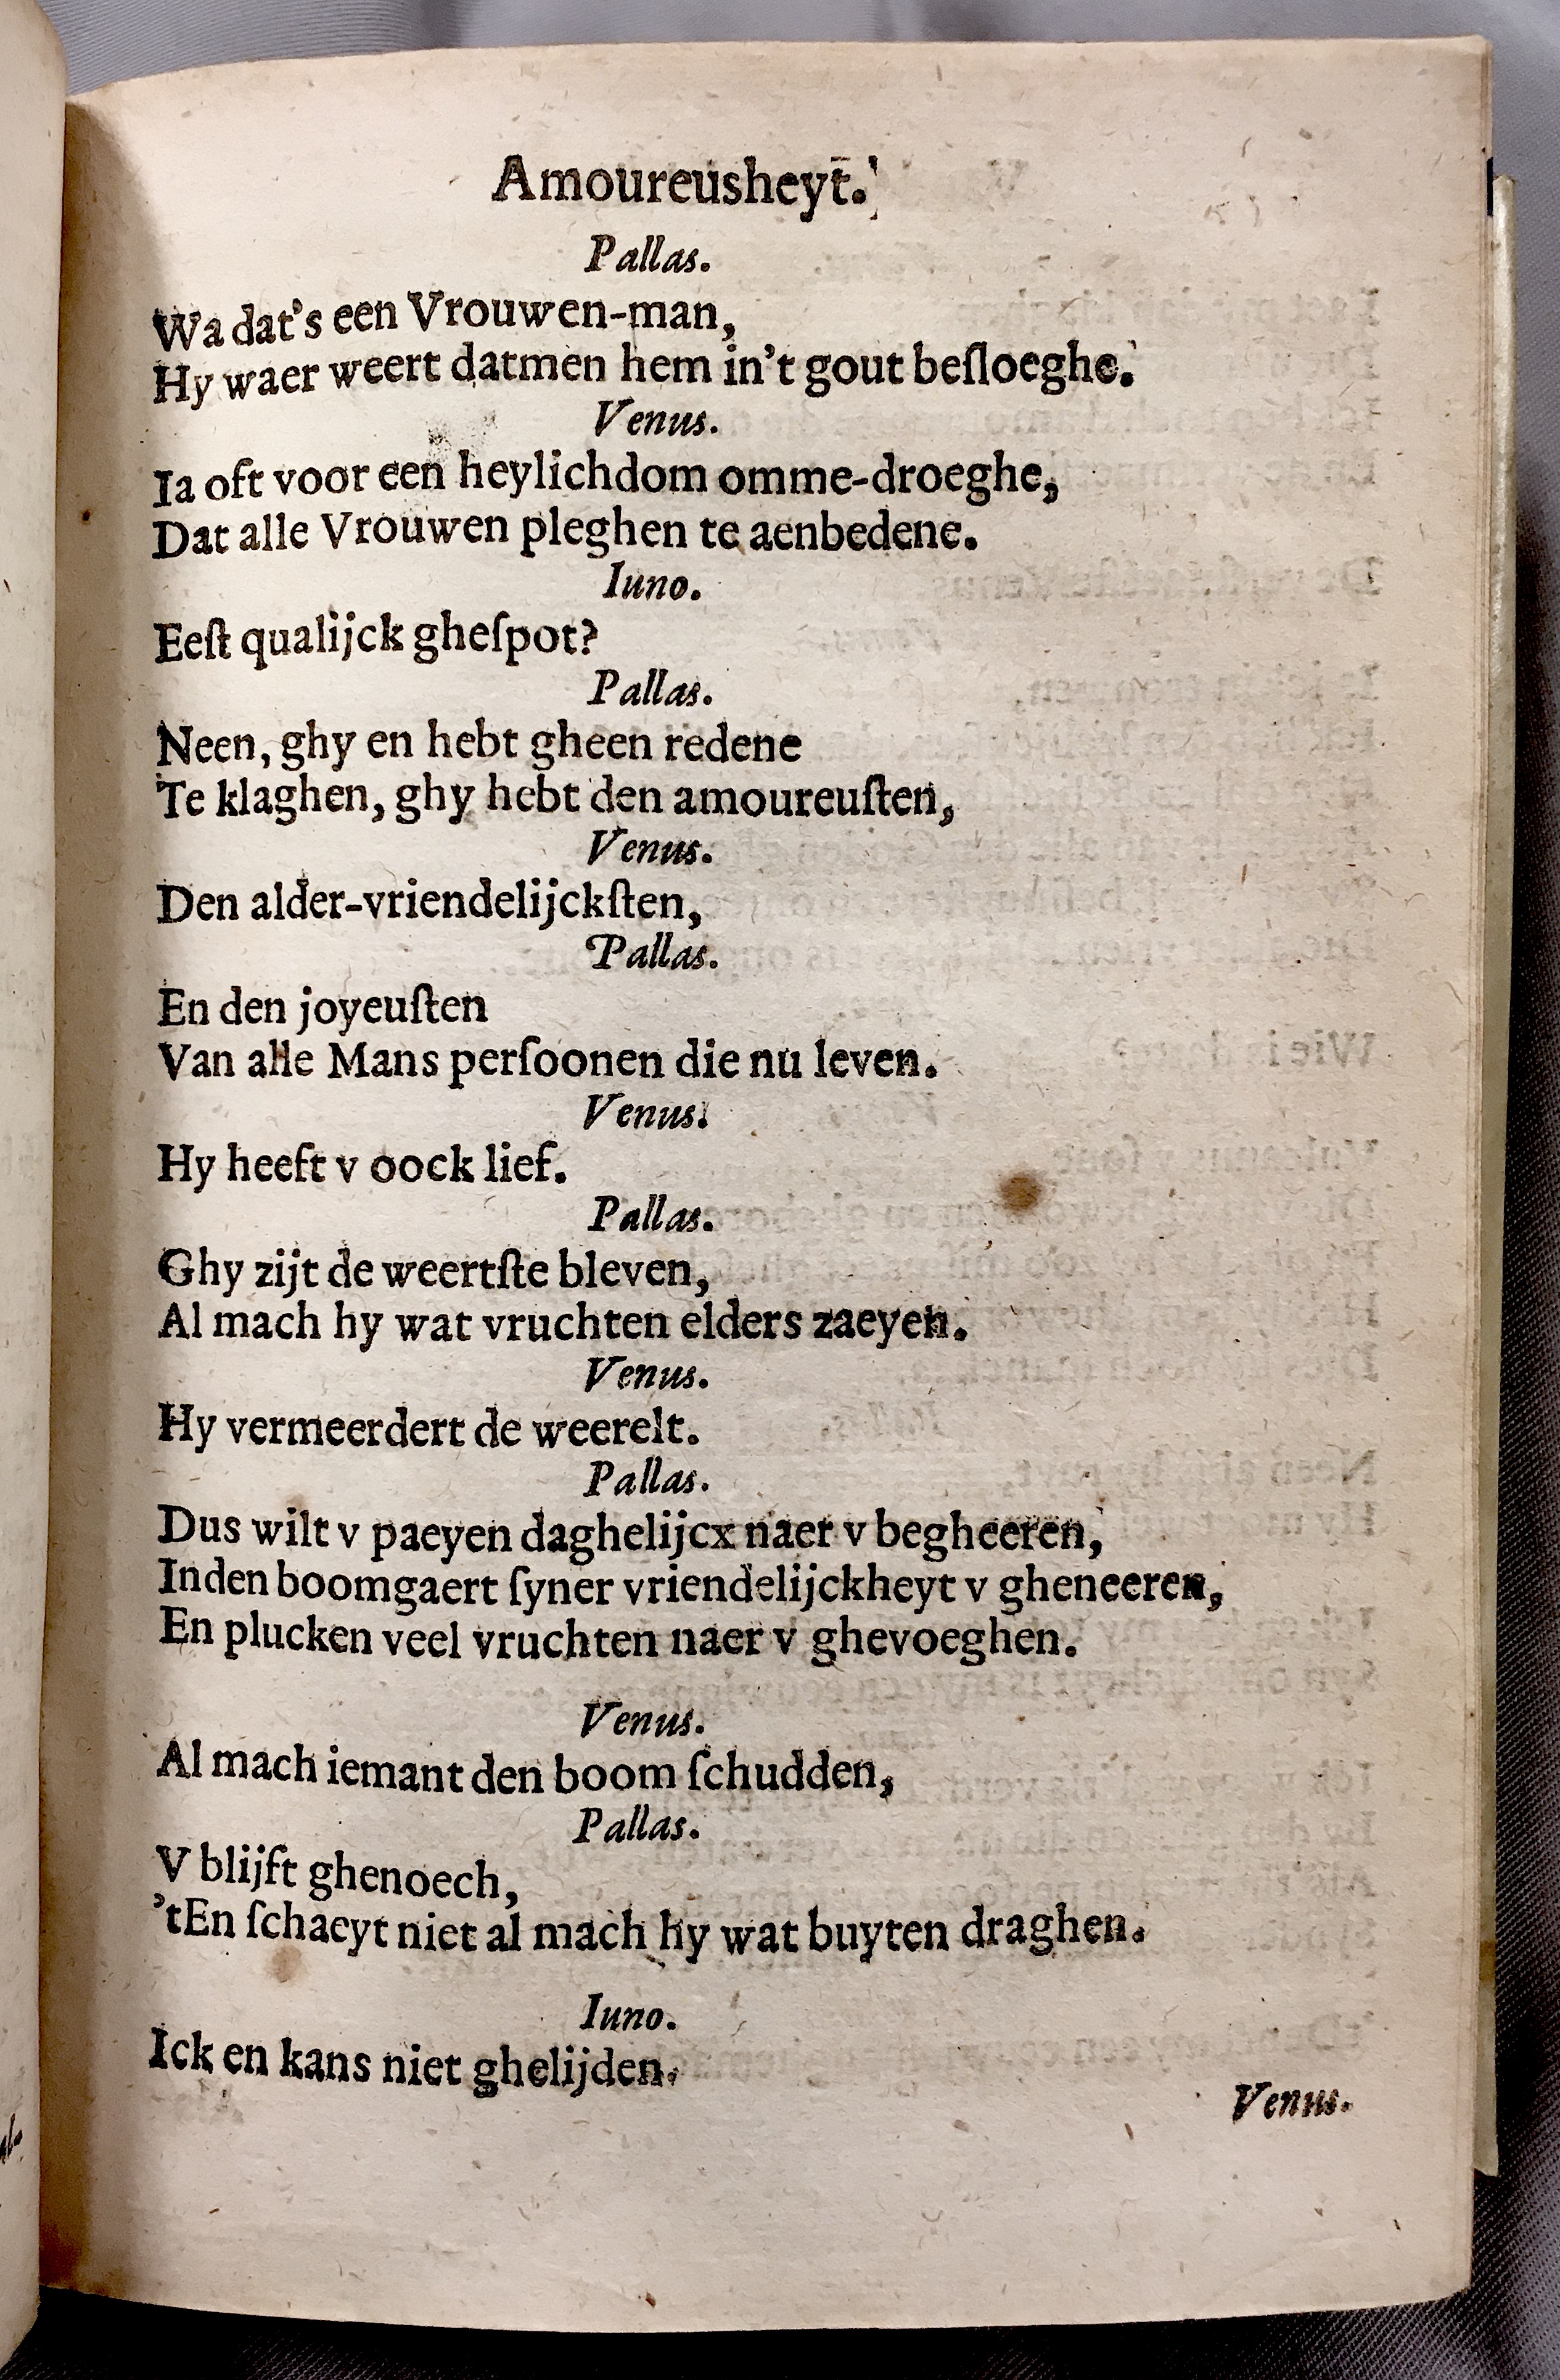 Amoureusheyt.
Pallas.
Wa dat's een Vrouwen-man,
Hy waer weert datmen hem in't gout beſloeghe.
Venus.
Ia oft voor een heylichdom omme-droeghe,
Dat alle Vrouwen pleghen te aenbedene.
Iuno.
Eeſt qualijck gheſpot?
Pallas.
Neen, ghy en hebt gheen redene
Te klaghen, ghy hebt den amoureuſten,
Venus.
Den alder-vriendelijckſten,
Pallas.
En den joyeuſten
Van alle Mans perſoonen die nu leven.
Venus.
Hy heeft v oock lief.
Pallas.
Ghy zijt de weertſte bleven,
Al mach hy wat vruchten elders zaeyen.
Venus.
Hy vermeerdert de weerelt.
Pallas.
Dus wilt v paeyen daghelijcx naer v begheeren,
Inden boomgaert ſyner vriendelijckheyt v gheneeren,
En plucken veel vruchten naer v ghevoeghen.
Venus.
Al mach iemant den boom ſchudden,
Pallas.
V blijft ghenoech,
'tEn ſchaeyt niet al mach hy wat buyten draghen.
Iuno.
Ick en kans niet ghelijden.
Venus.